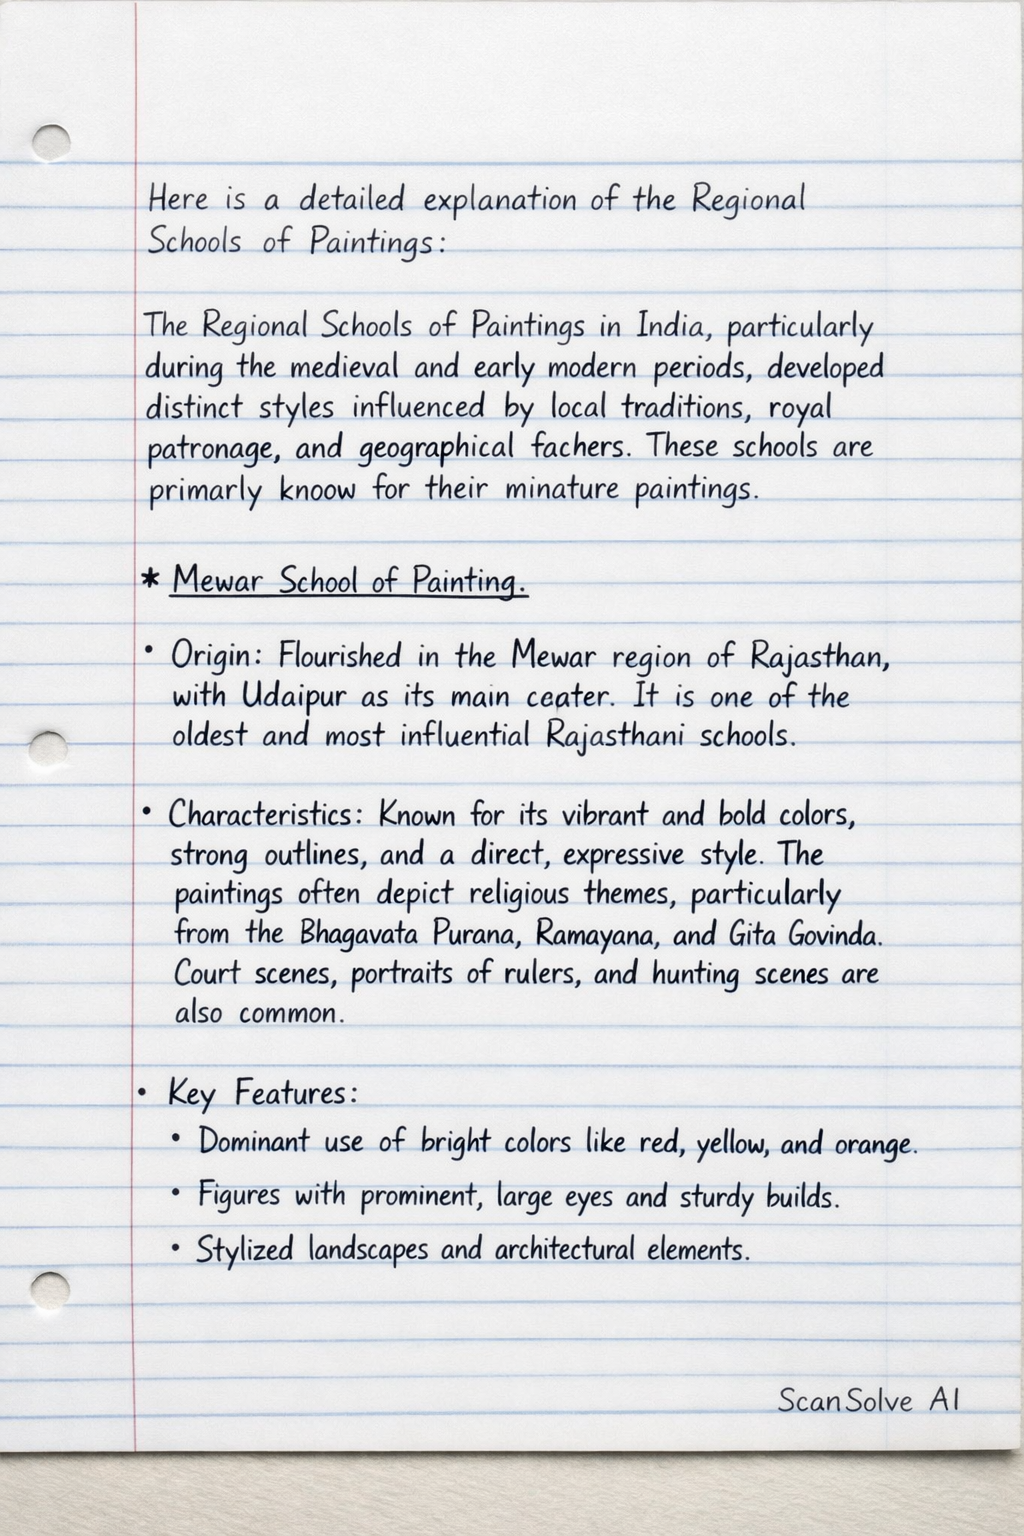 Here is a detailed explanation of the Regional
Schools of Paintings:
The Regional Schools of Paintings in India, particularly
during the medieval and early modern periods, developed
distinct styles influenced by local traditions, royal
patronage, and geographical fachers. These schools are
primarly knoow for their minature paintings.
* Mewar School of Painting.
• Origin: Flourished in the Mewar region of Rajasthan,
with Udaipur as its main ceater. It is one of the
oldest and most influential Rajasthani schools.
• Characteristics: Known for its vibrant and bold colors,
strong outlines, and a direct, expressive style. The
paintings often depict religious themes, particularly
from the Bhagavata Purana, Ramayana, and Gita Govinda.
Court scenes, portraits of rulers, and hunting scenes are
also common.
• Key Features:
• Dominant use of bright colors like red, yellow, and orange.
• Figures with prominent, large eyes and sturdy builds.
• Stylized landscapes and architectural elements.
ScanSolve AI